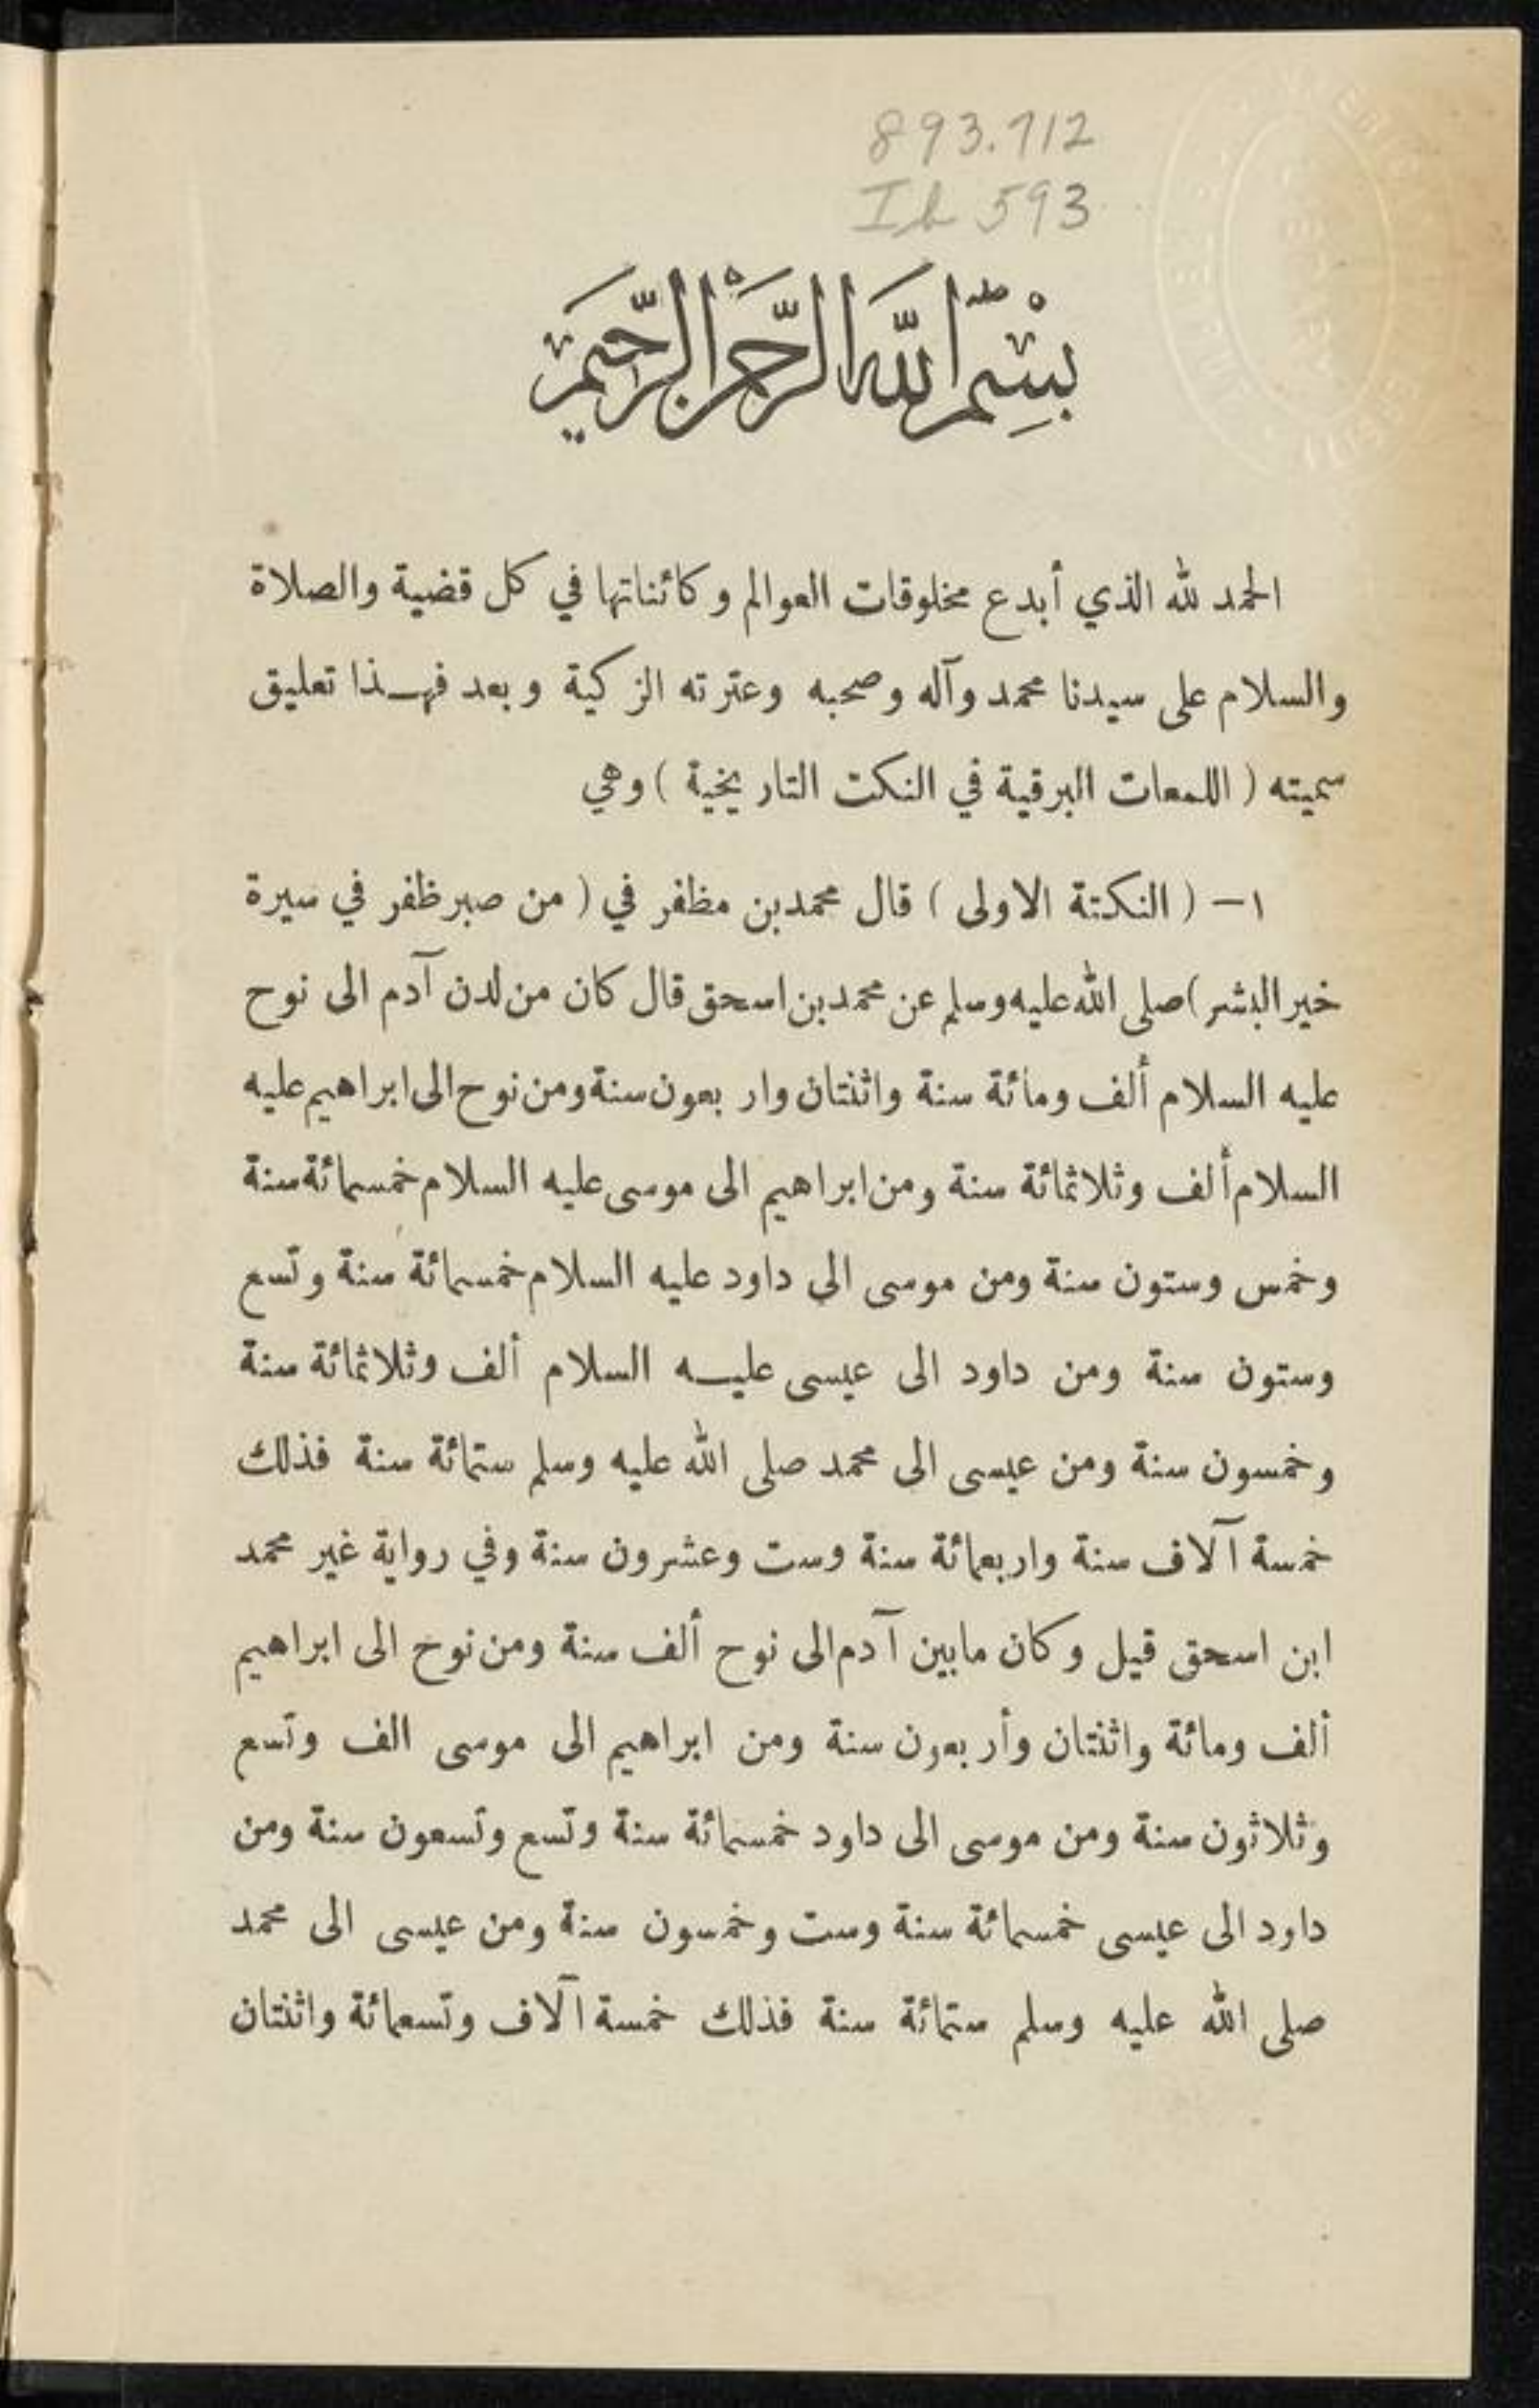 893.712
Ib 593
بِسْمِ اللَّهِ الرَّحْمَنِ الرَّحِيمِ
الحمد لله الذي أبدع مخلوقات العوالم وكائناتها في كل قضية والصلاة
والسلام على سيدنا محمد وآله وصحبه وعترته الزكية وبعد فهذا تعليق
سميته ( اللمعات البرقية في النكت التاريخية ) وهي
١ - ( النكتة الاولى ) قال محمد بن مظفر في ( من صبر ظفر في سيرة
خير البشر ) صلى الله عليه وسلم عن محمد بن اسحق قال كان من لدن آدم الى نوح
عليه السلام ألف ومائة سنة واثنتان واربعون سنة ومن نوح الى ابراهيم عليه
السلام ألف وثلاثمائة سنة ومن ابراهيم الى موسى عليه السلام خمسمائة سنة
وخمس وستون سنة ومن موسى الى داود عليه السلام خمسمائة سنة وتسع
وستون سنة ومن داود الى عيسى عليه السلام ألف وثلاثمائة سنة
وخمسون سنة ومن عيسى الى محمد صلى الله عليه وسلم ستمائة سنة فذلك
خمسة آلاف سنة واربعمائة سنة وست وعشرون سنة وفي رواية غير محمد
ابن اسحق قيل وكان مابين آدم الى نوح ألف سنة ومن نوح الى ابراهيم
ألف ومائة واثنتان وأربعون سنة ومن ابراهيم الى موسى الف وتسع
وثلاثون سنة ومن موسى الى داود خمسمائة سنة وتسع وتسعون سنة ومن
داود الى عيسى خمسمائة سنة وست وخمسون سنة ومن عيسى الى محمد
صلى الله عليه وسلم ستمائة سنة فذلك خمسة آلاف وتسعمائة واثنتان